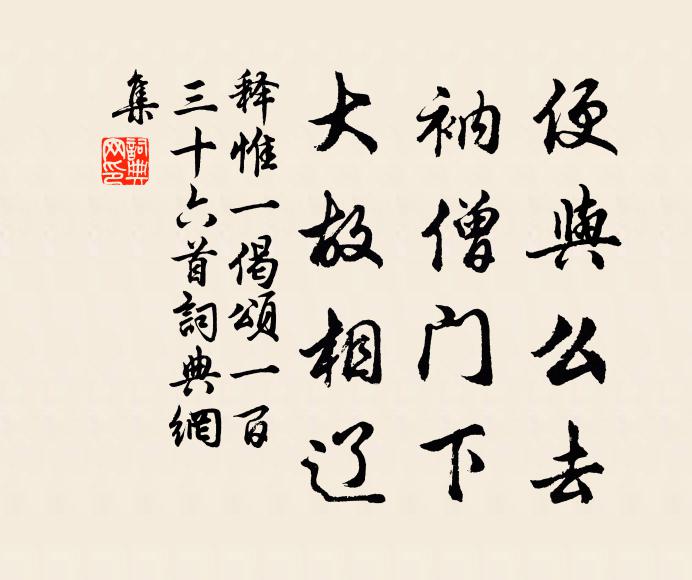 便與么去
衲僧门下
大故相辽
释惟一偈頌一百
三十六首詞典網
集
詞典
网印